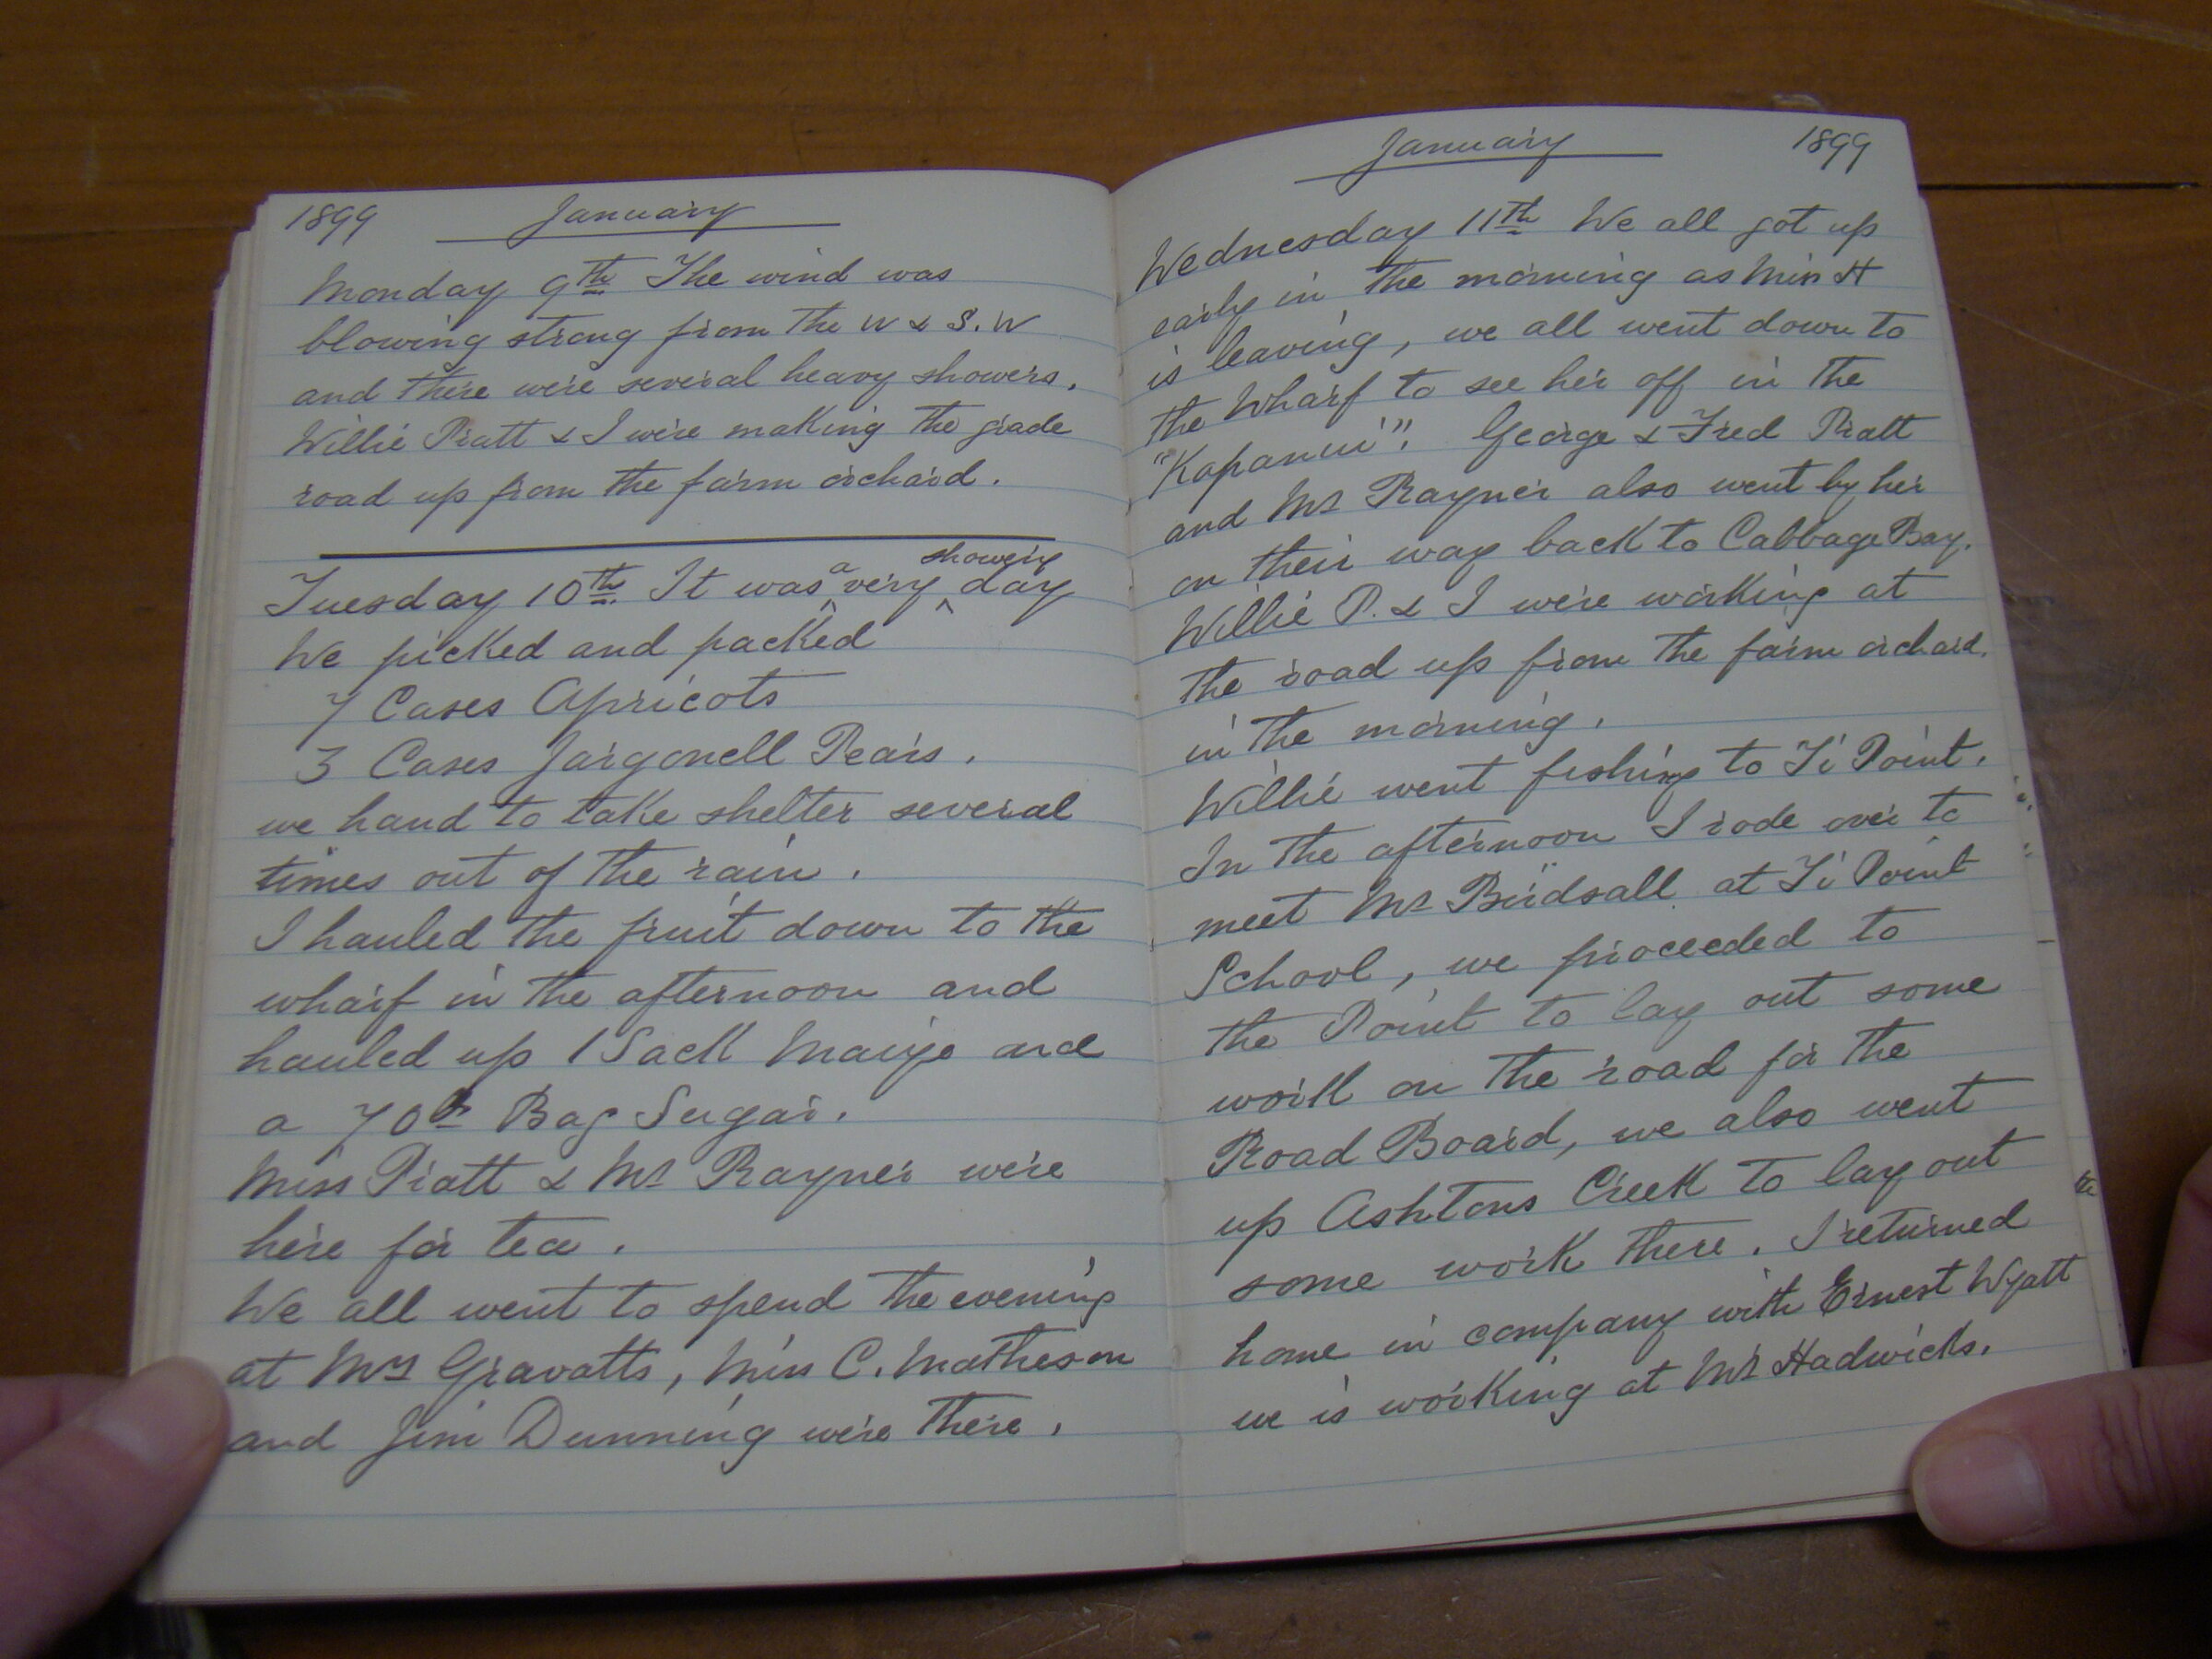 1899 January
Monday 9th The wind was
blowing strong from the W & S.W
and there were several heavy showers.
Willie Pratt & I were making the grade
road up from the farm orchard.
Tuesday 10th It was a very showery day
We picked and packed
7 Cases Apricots
3 Cases Jargonell Pears.
we hand to take shelter several
times out of the rain.
I hauled the fruit down to the
wharf in the afternoon and
hauled up 1 Sack Maize and
a 70lb Bag Sugar.
Miss Pratt & Mr Rayner were
here for tea.
We all went to spend the evening
at Mrs Gravatts, Miss C. Matheson
and Jim Dunning were there.
January 1899
Wednesday 11th We all got up
early in the morning as Miss H
is leaving, we all went down to
the Wharf to see her off in the
"Kapanui". George & Fred Pratt
and Mr Rayner also went by her
on their way back to Cabbage Bay.
Willie P. & I were working at
the road up from the farm orchard.
in the morning.
Willie went fishing to Ti Point.
In the afternoon I rode over to
meet Mr Birdsall at Ti Point
School, we proceeded to
the Point to lay out some
work on the road for the
Road Board, we also went
up Ashtons Creek to lay out
some work there. I returned
home in company with Ernest Wyatt
we is working at Mr Hadwicks.